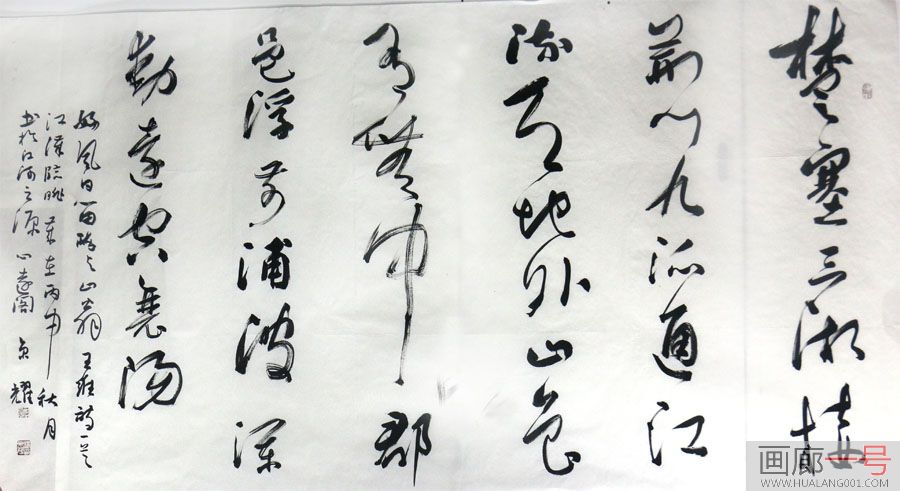 楚塞三湘接
荊门九派通江
流天地外山色
有無中郡
邑浮前浦波瀾
動遠空襄陽
好風日留醉与山翁 王維詩一首
江漢臨眺 歲在丙申秋月
书於江河之源 心遠阁 耀
画廊一号
WWW.HUALANG001.COM